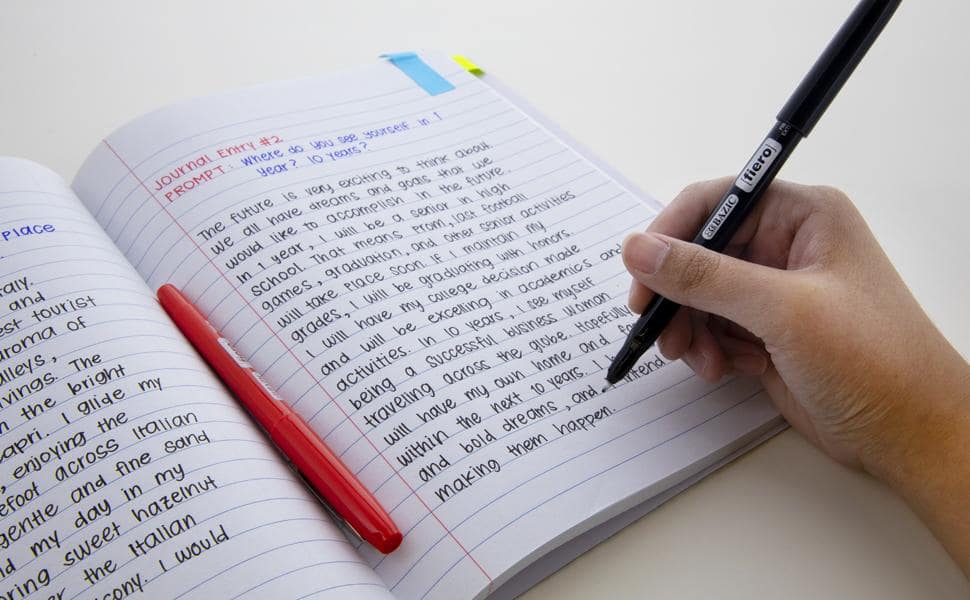 PLACE
Italy.
and
est tourist
aroma of
alleys,
vings. The
n the bright
capri. I glide my
, enjoying the
efoot across Italian
gentle and fine sand
nd my day in my
oring sweet hazelnut
er the Italian
cony. I would
Journal Entry #2
PROMPT: Where do you see yourself in 1
year? 10 years?
The future is very exciting to think about
We all have dreams and goals that we
would like to accomplish in the future.
In 1 year, I will be a senior in high
school. That means prom, last football
games, graduation, and other senior activities
will take place soon. If I maintain my
grades, I will be graduating with honors.
I will have my college decision made
and will be excelling in academics and
activities. In 10 years, I see myself
being a successful business woman
traveling across the globe. Hopefully
will have my own home and
within the next 10 years. I
and bold dreams, and intend
making them happen.
BAZIC fiero